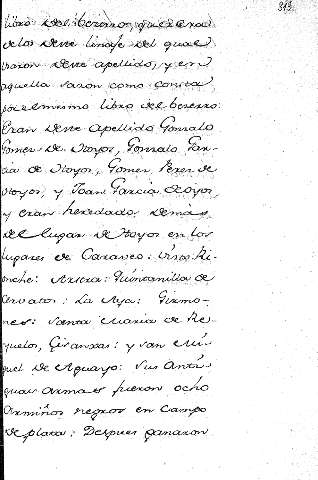 313.
libro del bezerro, que era
de los deste linaje del qual
varon deste apellido, y en
aquella razon como consta
por el mismo libro del bezerro.
Eran deste apellido Gonzalo
Gomez de Hoyos, Gonzalo Gar-
cia de Hoyos, Gomez Perez de
Hoyos, y Joan Garcia Hoyos,
y eran heredados demas
del lugar de Hoyos en los
lugares de Caraveo: Orna Ri-
conche: Aviera: Quintanilla de
Cervatos: La Aya: Girmo-
nes: Santa Maria de Re-
yuelos, Givanxas: y San Mi-
guel de Aguayo: Sus anti-
guas armas fueron ocho
Armiños negros en Campo
de plata: Despues ganaron